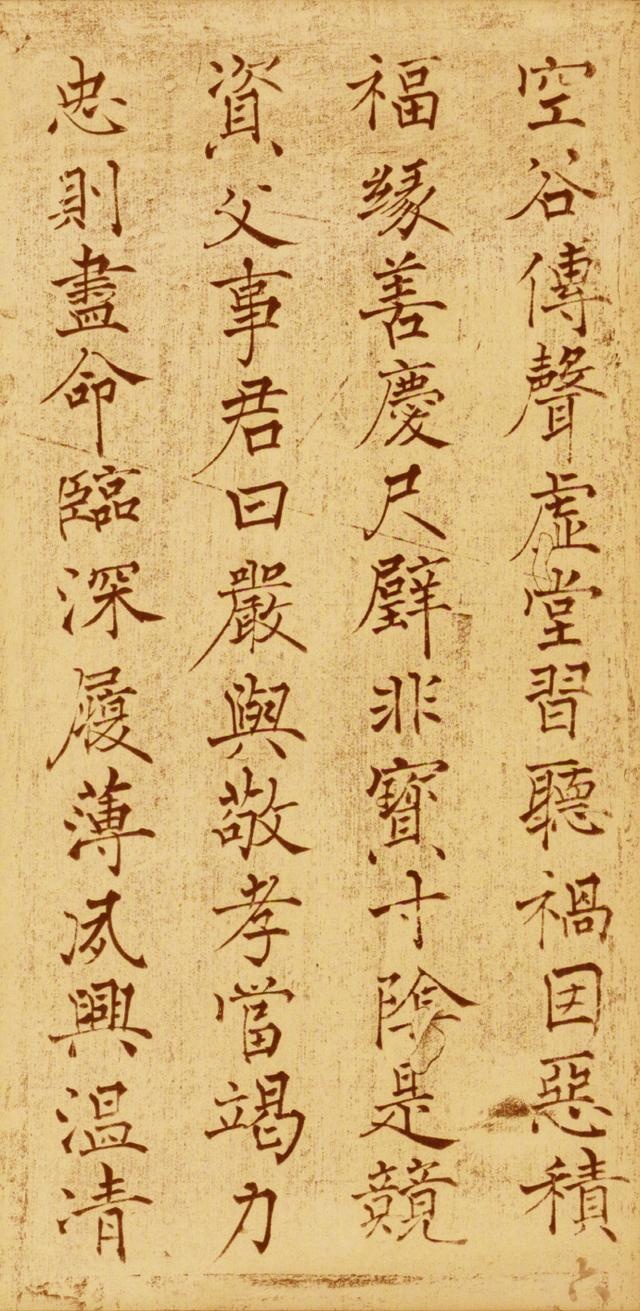 空谷傳聲虛堂習聽禍因惡積
福緣善慶尺璧非寶寸陰是競
資父事君曰嚴與敬孝當竭力
忠則盡命臨深履薄夙興温凊
六